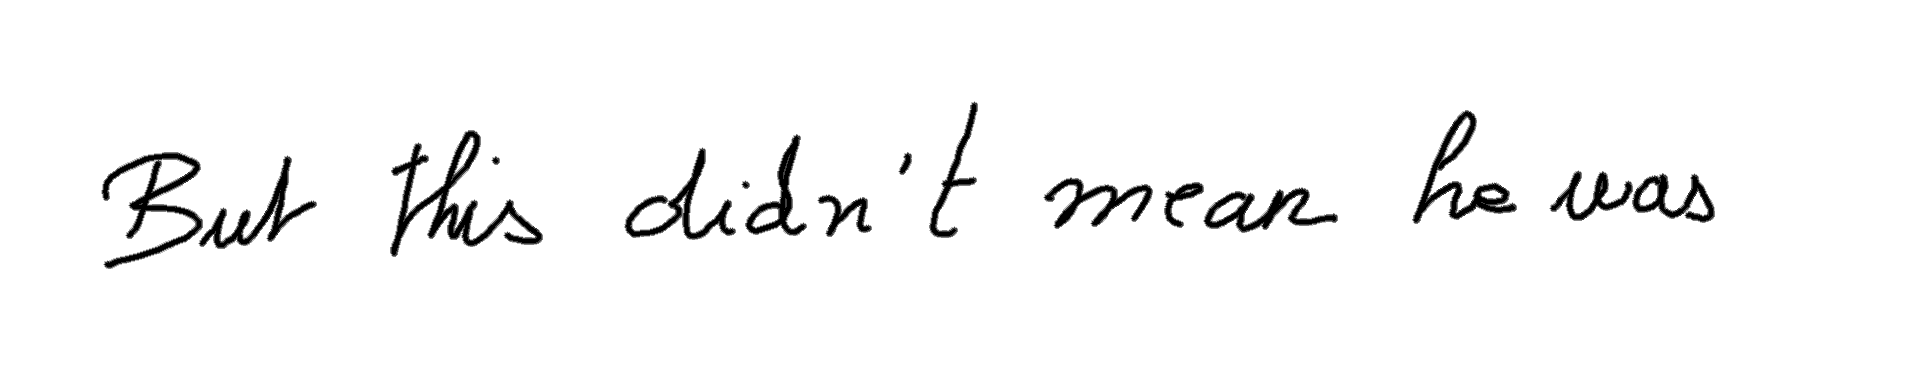 But this didn't mean he was